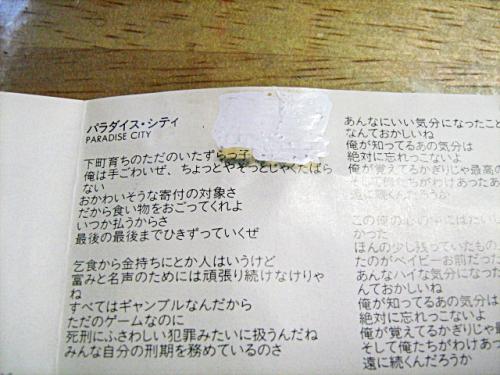 パラダイス・シティ
PARADISE CITY
下町育ちのただのいたずらっ子
俺は手ごわいぜ、ちょっとやそっとじゃくたばら
ない
おかわいそうな寄付の対象さ
だから食い物をおごってくれよ
いつか払うからさ
最後の最後までひきずっていくぜ
乞食から金持ちにとか人はいうけど
富みと名声のためには頑張り続けなけりゃ
ね
すべてはギャンブルなんだから
ただのゲームなのに
死刑にふさわしい犯罪みたいに扱うんだね
みんな自分の刑期を務めているのさ
あんなにいい気分になったこと
なんておかしいね
俺が知ってるあの気分は
絶対に忘れっこないよ
俺が覚えてるかぎりじゃ最高の
そして俺たちがわけあったあ
遠に続くんだろうか
この俺の心の中には
かった
ほんの少し残っていたもの
たのがベイビーお前だった
あんなハイな気分になった
んておかしいね
俺が知ってるあの気分は
絶対に忘れっこないよ
俺が覚えてるかぎりじゃ最
そして俺たちがわけあっ
遠に続くんだろうか